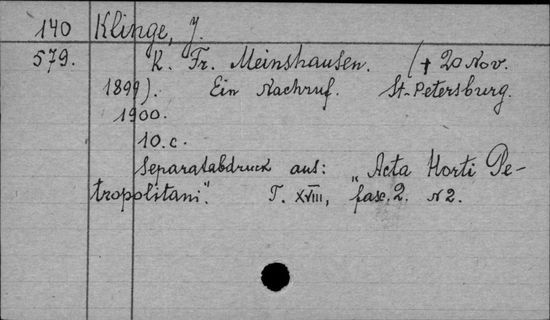 140 Klinge, J.
579. K. Fr. Meinshausen. († 20 Nov.
1899). Ein Nachruf. St.-Petersburg.
1900.
10. c.
Separatabdruck aus: „Acta Horti Pe-
tropolitani". T. XVIII, fasc. 2. N 2.